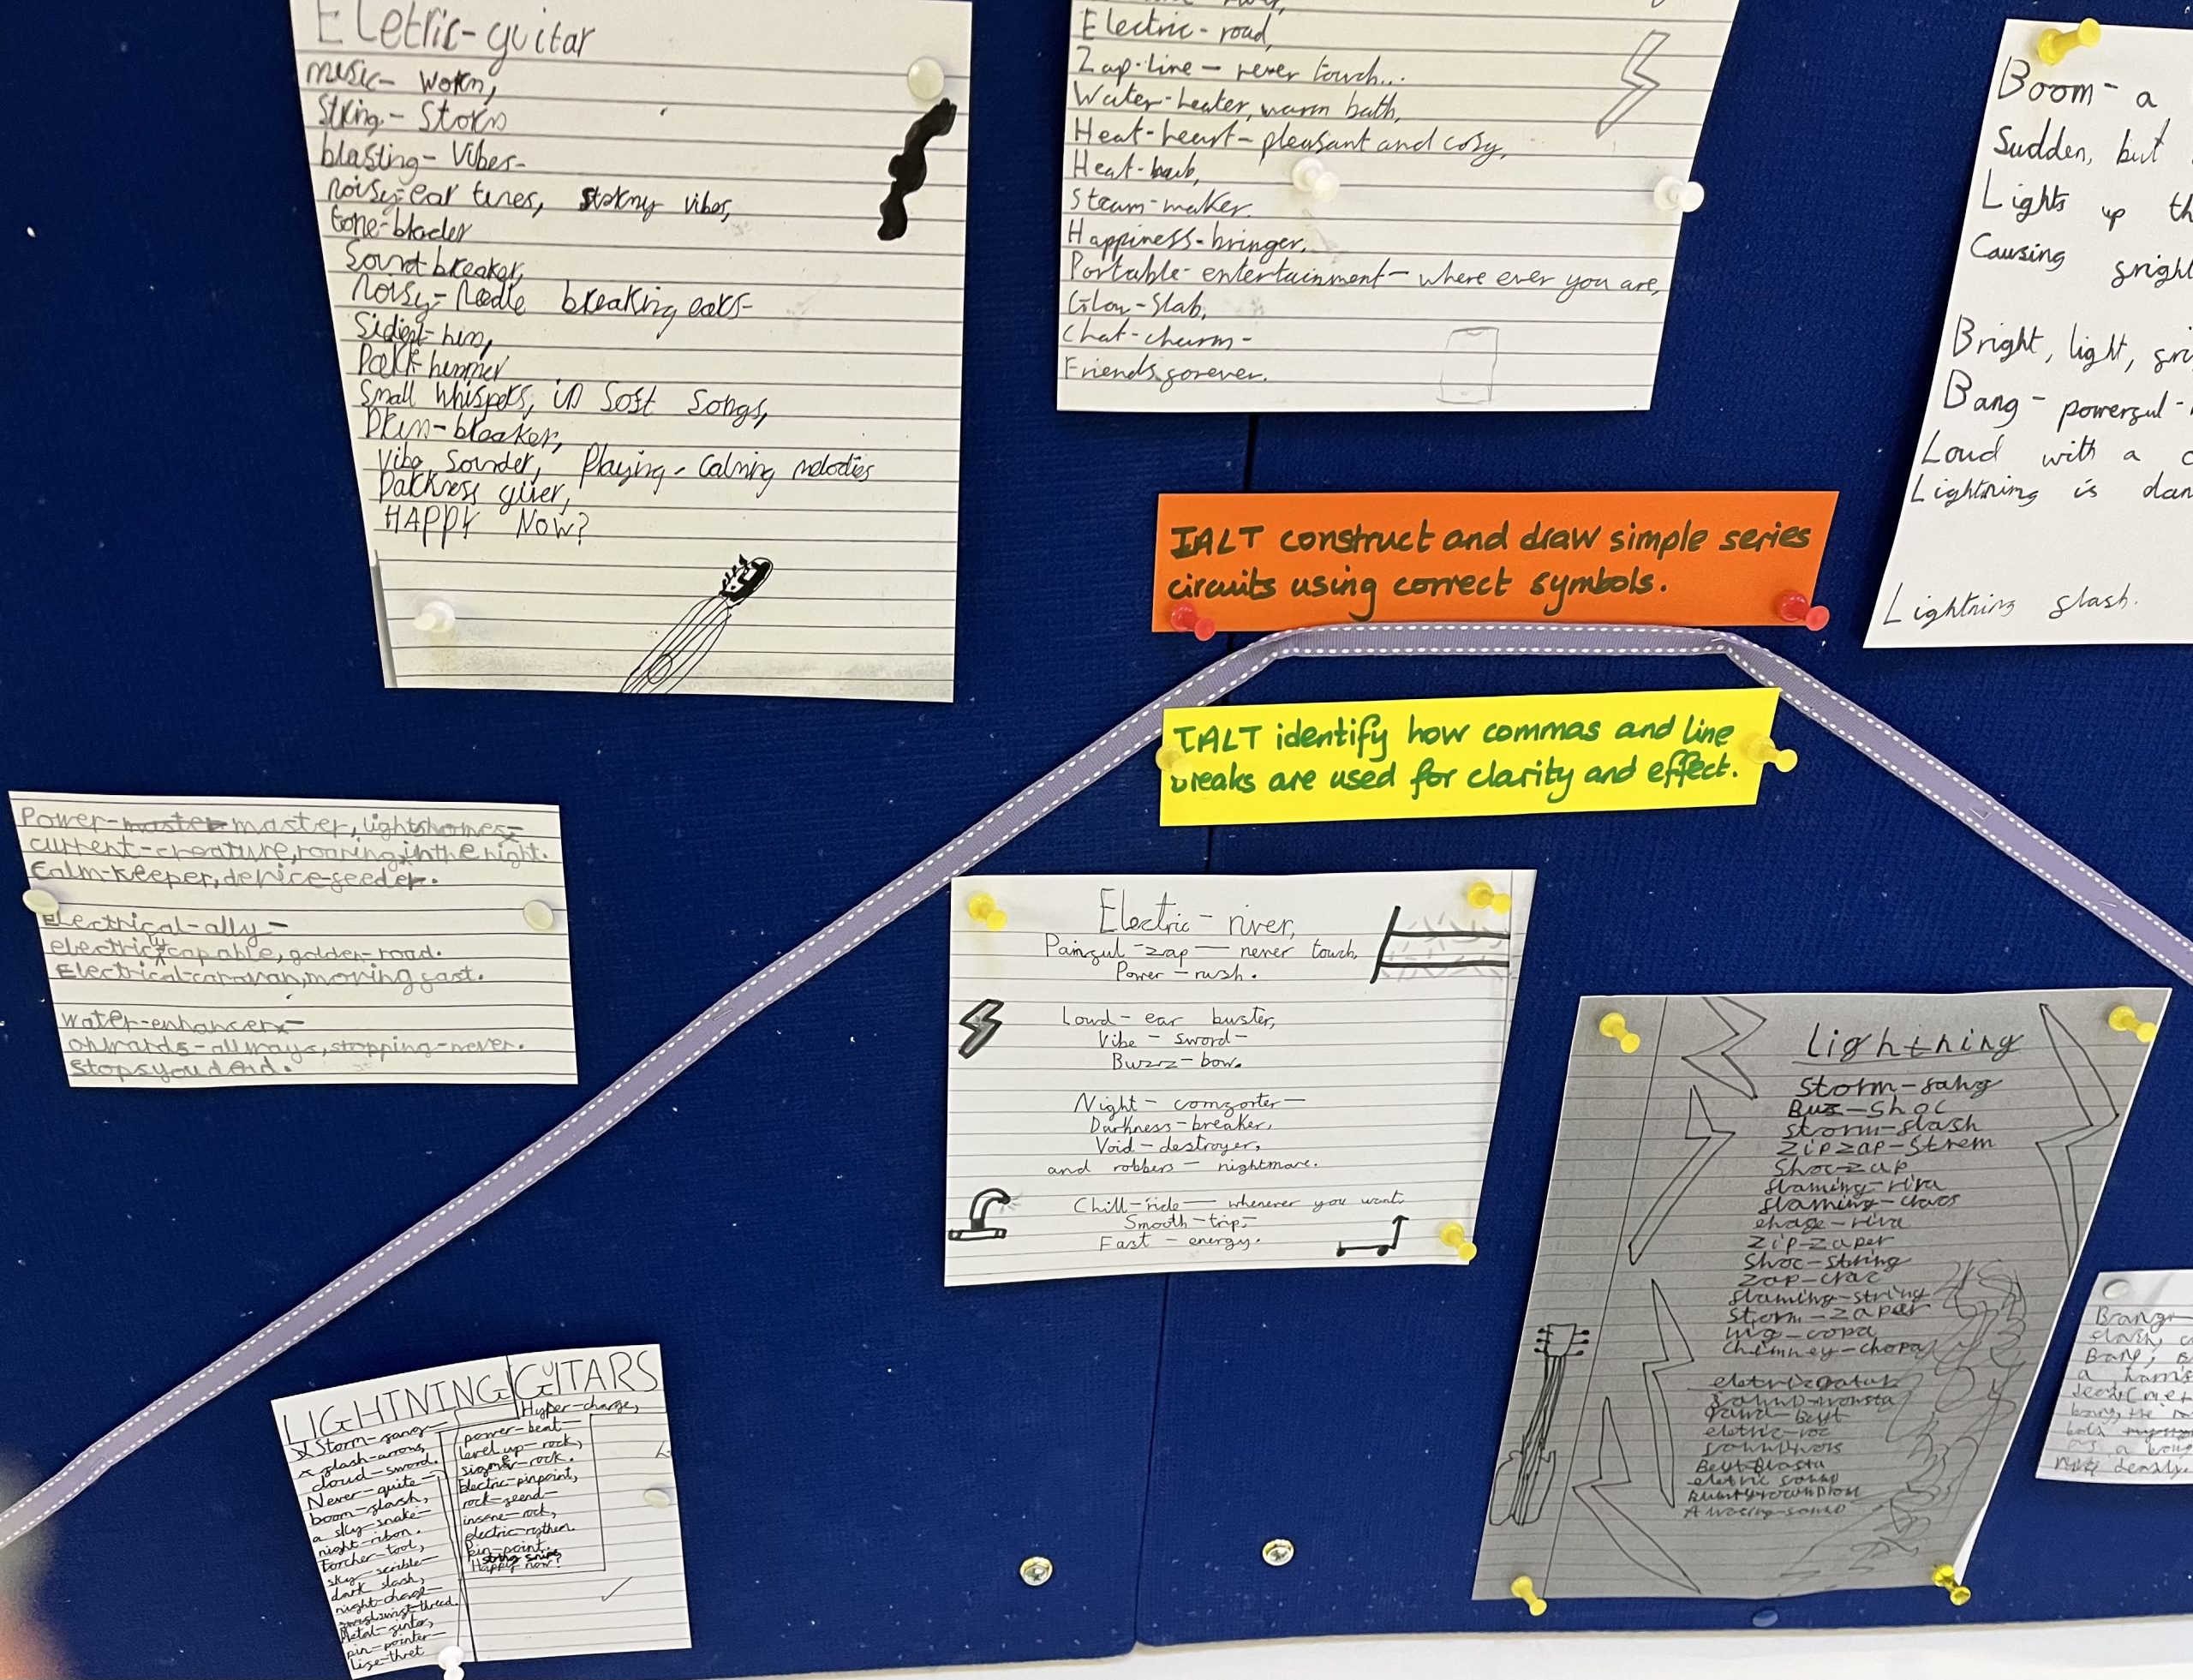 Eletric-guitar
music-
String-
blasting-Vibes-
noisy-ear tunes, stormy vibes,
tone-blader
Sound breaker,
Noisy-Noodle breaking ears-
Small whispers, in soft songs,
Drum-breaker,
Vibe Sounder, Playing-Calming melodies
Darkness giver,
HAPPY NOW?
Electric-road,
Zap-line - never touch...
Water-heater, warm bath,
Heat-heart-pleasant and cosy,
Heat-
Steam-maker.
Happiness-bringer,
Portable-entertainment-where ever you are,
Glow-slab,
Chat-charm-
Friends forever.
Boom- a
Sudden, but
Lights up th
Causing
Bright, light,
Bang- powerful-
Loud with a
Lightning is dan
Lightning flash.
IALT construct and draw simple series
circuits using correct symbols.
IALT identify how commas and line
breaks are used for clarity and effect.
Power-master master, lightshomes-
current-creature, roaring in the night.
Calm-keeper, device feeder.
Electrical-ally-
capable, golden-road.
Electrical-caravan, moving fast.
water-enhancer-
onwards-allways, stopping-never.
stops you dead.
Electric-river,
Painful-zap-never touch,
Power-rush.
Loud-ear buster,
Vibe-sword-
Buzzz-bow.
Night-comforter-
Darkness-breaker,
Void-destroyer,
and robbers-nightmare.
Chill-ride-whenever you want.
Smooth-trip-
Fast-energy.
lightning
Storm-fang
Buz-Shoc
Storm-flash
Zipzap-Strem
Shoc-zap
flaming-riva
flaming-
riva
Zip-zaper
Shoc-string
zap-crac
flaming-string
Storm-zaper
Chimney-chopa
eletric
LIGHTNING GUITARS
Storm-fang-
flash-arrows,
cloud-sword.
Never-quite-
boom-flash,
a sky-snake-
night-ribon.
Forcher-tool,
sky-scrible-
dark slash,
night-charge-
Metal-
pin-pointer-
Hyper-charge,
power-beat-
level up-rock,
-rock.
Electric-pinpoint,
rock-
insane-rock,
electric-rythem.
pin-point,
Happy now?